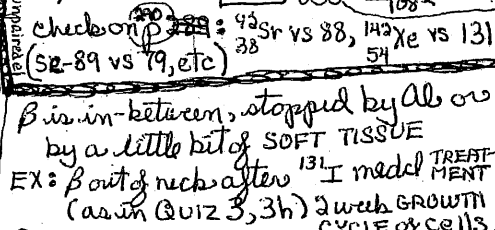 check on p : 42 38 Sr vs 88, 142 54 Xe vs 131
(se-89 vs 79, etc)
β is in-between, stopped by Al or
by a little bit of SOFT TISSUE
EX: β out of neck after 131I medcl TREAT-
MENT
(as in QUIZ 3, 3h) 2 week GROWTH
CYCLE of cells